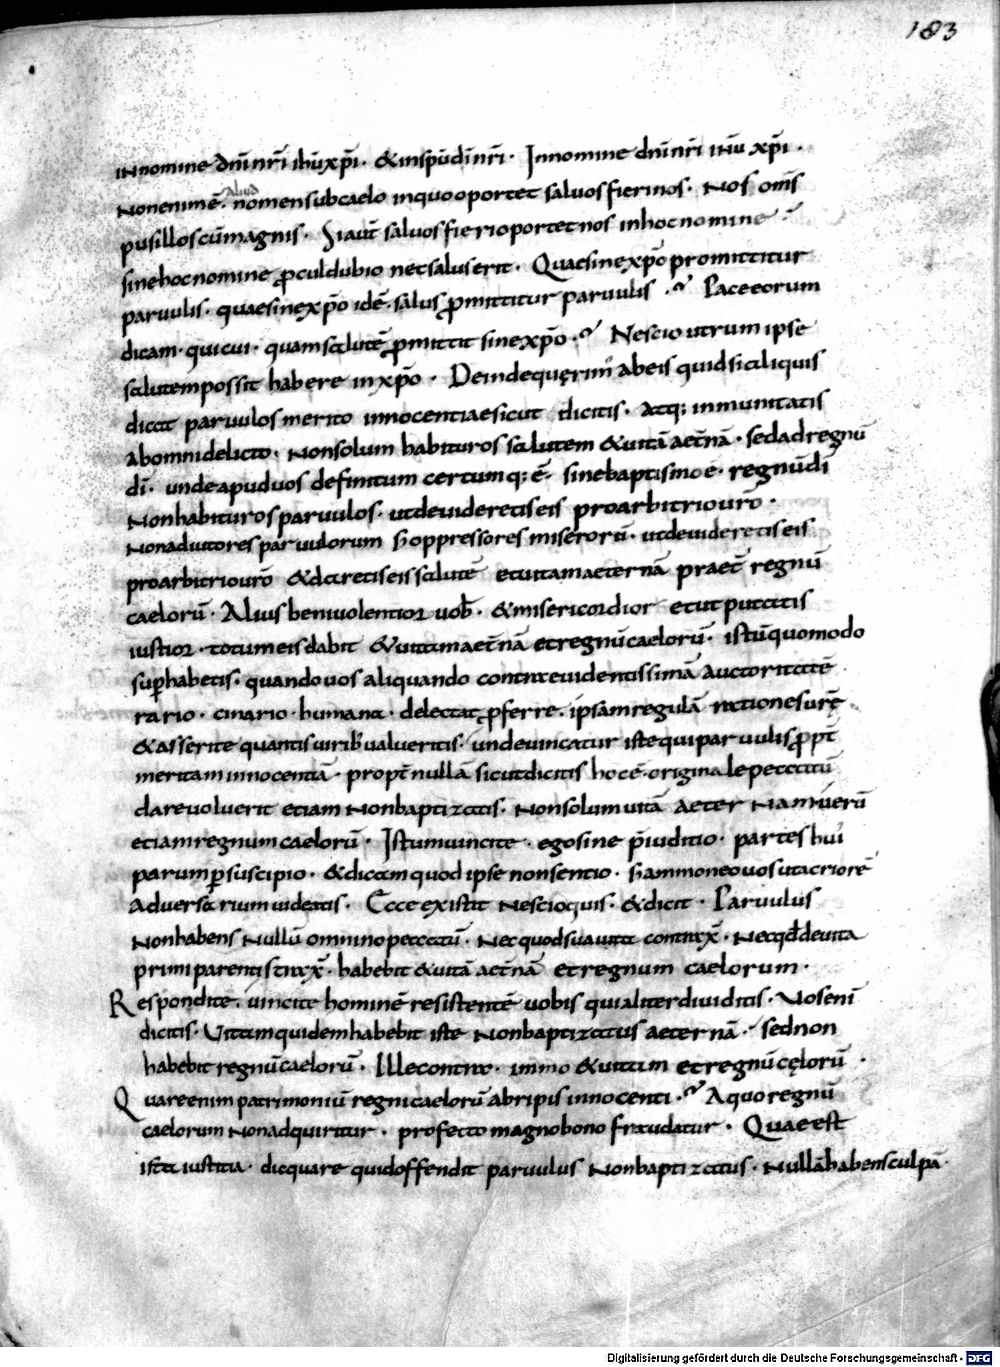 183
INnomine dn̄i nr̄i ihū xp̄i. & inspū dī nr̄i. Innomine dn̄i nr̄i ihū xp̄i.
Nonenim ē aliud nomen subcaelo inquo oportet saluos fieri nos. Nos om̄s
pusillos cū magnis. Siaut̄ saluos fieri oportet nos inhoc nomine
sinehoc nomine p̄culdubio nec salus erit. Quae sinexp̄o promittitur
paruulis. quae sinexp̄o idē. salus p̄mittitur paruulis. Pace eorum
dicam. qui cui. quam salutē p̄mittit sinexp̄o. Nescio utrum ipse
salutem possit habere inxp̄o. Deinde quęrim' abeis quid si aliquis
dicat paruulos merito innocentiae sicut dicitis. atq; inmunitatis
abomni delicto. Nonsolum habituros salutem & uitā aet̄nā. sed ad regnū
dī. unde apud uos definitum certumq; ē. sine baptismo ē. regnū dī
Non habituros paruulos. ut deuideretis eis pro arbitrio ur̄o.
Non adiutores paruulorum s; oppressores miserorū. ut deuideretis eis
pro arbitrio ur̄o & daretis eis salutē et uitam aeternā praet̄ regnū
caelorū. Alius beniuolentior uob̄. & misericordior et ut putatis
iustior. totum eis dabit & uitam aet̄nā et regnū caelorū. istū quomodo
sup̄habetis. quando uos aliquando contra euidentissimā auctoritatē
rario cinario humana. delectat p̄ferre. ipsam regulā rationes urē
& asserite quantis uirib; ualueritis. unde uincatur iste qui paruulis p̄pt̄
meritam innocentiā. propt̄ nullā sicut dicitis hoc ē. originale peccatū
dare uoluerit etiam non baptizatis. Non solum uitā aeternam uerū
etiam regnum caelorū. Istum uincite. ego sine p̄iuditio. partes hui'
parum p̄ suscipio. & dicam quod ipse non sentio. s; ammoneo uos ut acriorē
aduersarium uideatis. Ecce existit nescio quis. & dicit. Paruulus
Non habens nullū omnino peccatū. Nec quod sua uita contrax̄. Nec qd̄ de uita
primi parentis trax̄. habebit & uitā aet̄nā et regnum caelorum.
Respondite. uincite hominē resistentē uobis qui aliter diuiditis. Vos enī
dicitis. Vitam quidem habebit iste non baptizatus aeternā. sed non
habebit regnū caelorū. Ille contra. immo & uitam et regnū cęlorū.
Quare enim patrimoniū regni caelorū abripis innocenti. A quo regnū
caelorum non adquiritur. profecto magno bono fraudatur. Quae est
ista iustitia. dic quare quid offendit paruulus non baptizatus. Nullā habens culpā.
Digitalisierung gefördert durch die Deutsche Forschungsgemeinschaft - DFG